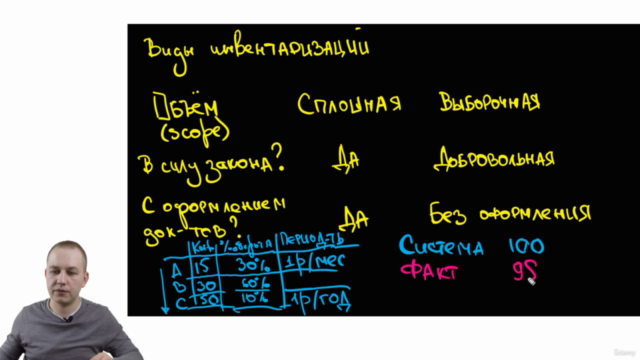 Виды инвентаризаций
Объём Сплошная Выборочная
(scope)
В силу закона? Да Добровольная
С оформлением
док-тов? Да Без оформления
Кол-во % оборота Период-ть
A 15 30% 1р/мес
B 30 60%
C 50 10% 1р/год
Система 100
Факт 98